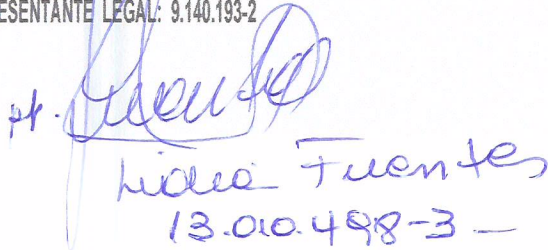 ESENTANTE LEGAL: 9.140.193-2
pp.
Lidia Fuentes
13.010.498-3